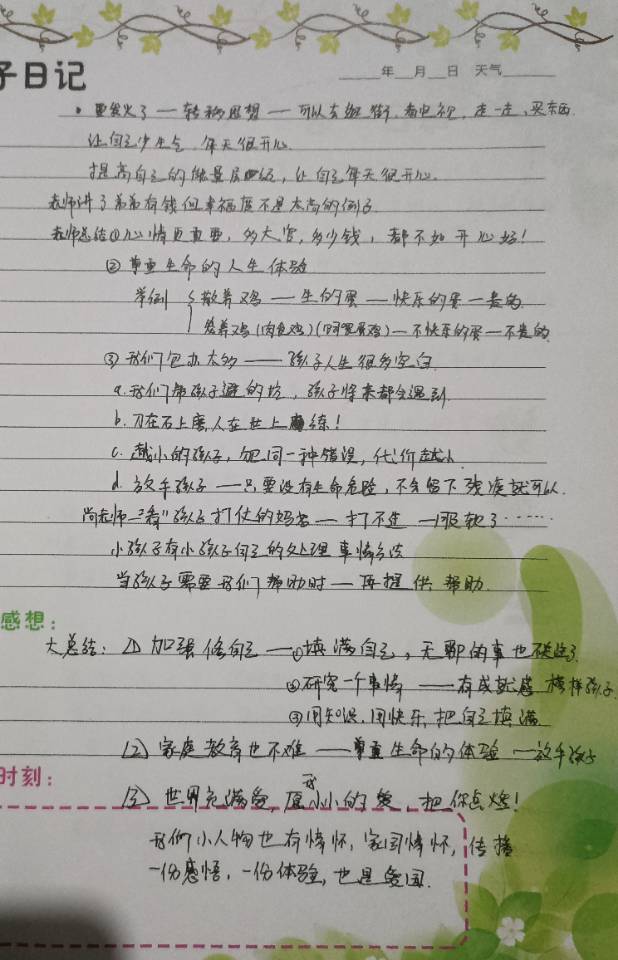 子日记 年 月 日 天气
· 要发火了 — 转移思想 — 可以去逛街.看电视.走一走,买东西
让自己少生气 每天很开心.
提高自己的能量层级,让自己每天很开心.
老师讲了弟弟有钱但幸福度不是太高的例子
老师总结①心情更重要,多大官,多少钱,都不如开心好!
②尊重生命的人生体验
举例 散养鸡 — 生的蛋 — 快乐的蛋 —
养鸡(肉食鸡)( 蛋鸡)— 不快乐的蛋 —
③我们包办太多 —— 孩子人生很多空白
a.我们帮孩子避的坑,孩子将来都会遇到.
b.刀在石上磨,人在世上练!
c.越小的孩子,犯同一种错误,代价越小.
d.放手孩子 — 只要没有生命危险,不会留下残疾就可以.
尚老师—"看"孩子打仗的妈妈— 打不过 —服软了……
小孩子有小孩子自己的处理事情方法
当孩子需要我们帮助时 — 再提供帮助.
感想:
大总结:(1)加强修自己 —①填满自己,无聊的事也不
②研究一个事情 —— 有成就感 榜样孩子
③用知识.用快乐,把自己填满
(2)家庭教育也不难 —— 尊重生命的体验 — 放手孩子
时刻:
(3)世界充满爱,愿我小小的爱,把你点燃!
我们小人物也有情怀,家国情怀,传播
一份感悟,一份体验,也是爱国.